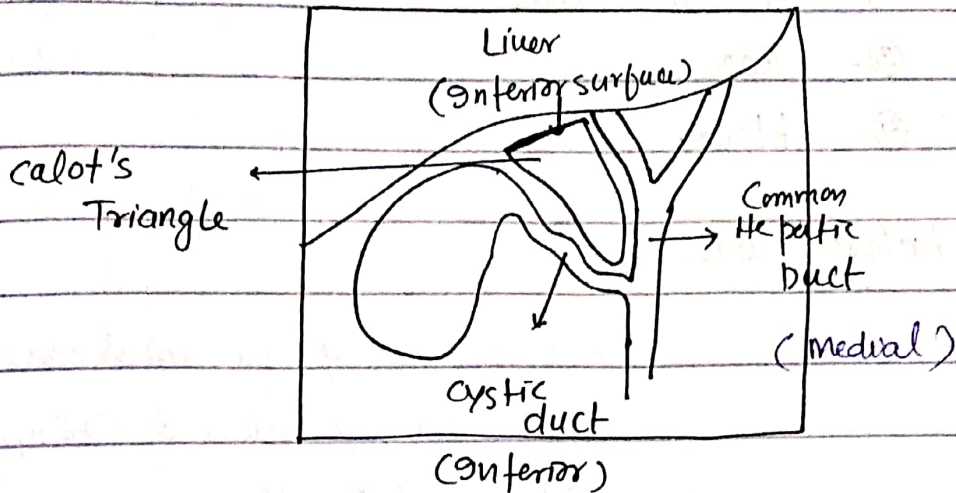 Liver
(Inferior surface)
Calot's
Triangle
Common
Hepatic
Duct
(Medial)
Cystic
duct
(Inferior)